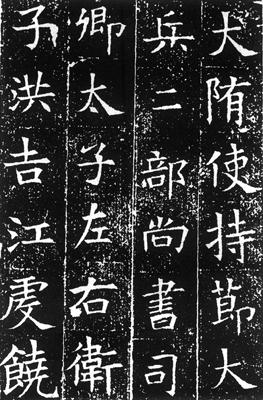 大隋使持節大
兵二部尚書司
卿太子左右衛
子洪吉江虔饒